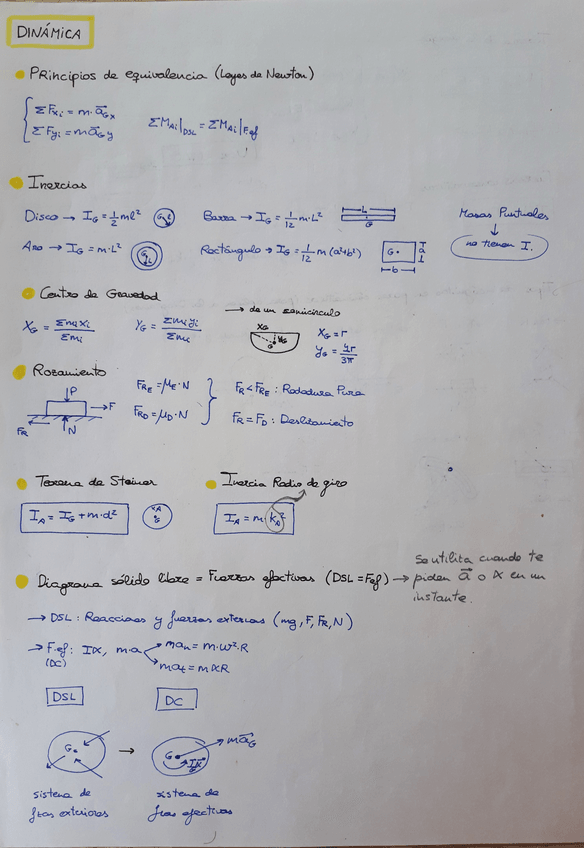 DINÁMICA
Principios de equivalencia (Leyes de Newton)
ΣFxi = m·a⃗Gx
ΣFyi = m a⃗G y
ΣMAi|DSL = ΣMAi|F.ef
Inercias
Disco → IG = 1/2 ml² G L
Barra → IG = 1/12 m·L² L G
Masas Puntuales
↓
no tienen I.
Aro → IG = m·L² G L
Rectángulo → IG = 1/12 m(a²+b²) G a b
Centro de Gravedad
→ de un semicírculo
XG = Σmixi/Σmi YG = Σmiyi/Σmi
XG YG G
XG = r
yG = 4r/3π
Rozamiento
P F FR N
FRE = μE·N
FRD = μD·N
FR < FRE : Rodadura Pura
FR = FD : Deslizamiento
Teorema de Steiner
IA = IG + m·d² A G
Inercia Radio de giro
IA = m·kA²
Diagrama sólido libre = Fuerzas efectivas (DSL = Fef) → Se utilita cuando te
piden a⃗ o α en un
instante.
→ DSL : Reacciones y fuerzas externas (mg, F, FR, N)
→ F.ef : Iα, m·a man = m·ω²·R
(DC) mat = mαR
DSL DC
G → G ma⃗G Iα⃗
sistema de
fzas exteriores
sistema de
fzas efectivas